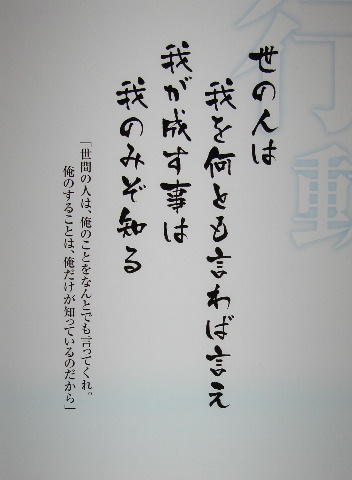 行動
世の人は
我を何とも言わば言え
我が成す事は
我のみぞ知る
「世間の人は、俺のことをなんとでも言ってくれ。
俺のすることは、俺だけが知っているのだから」